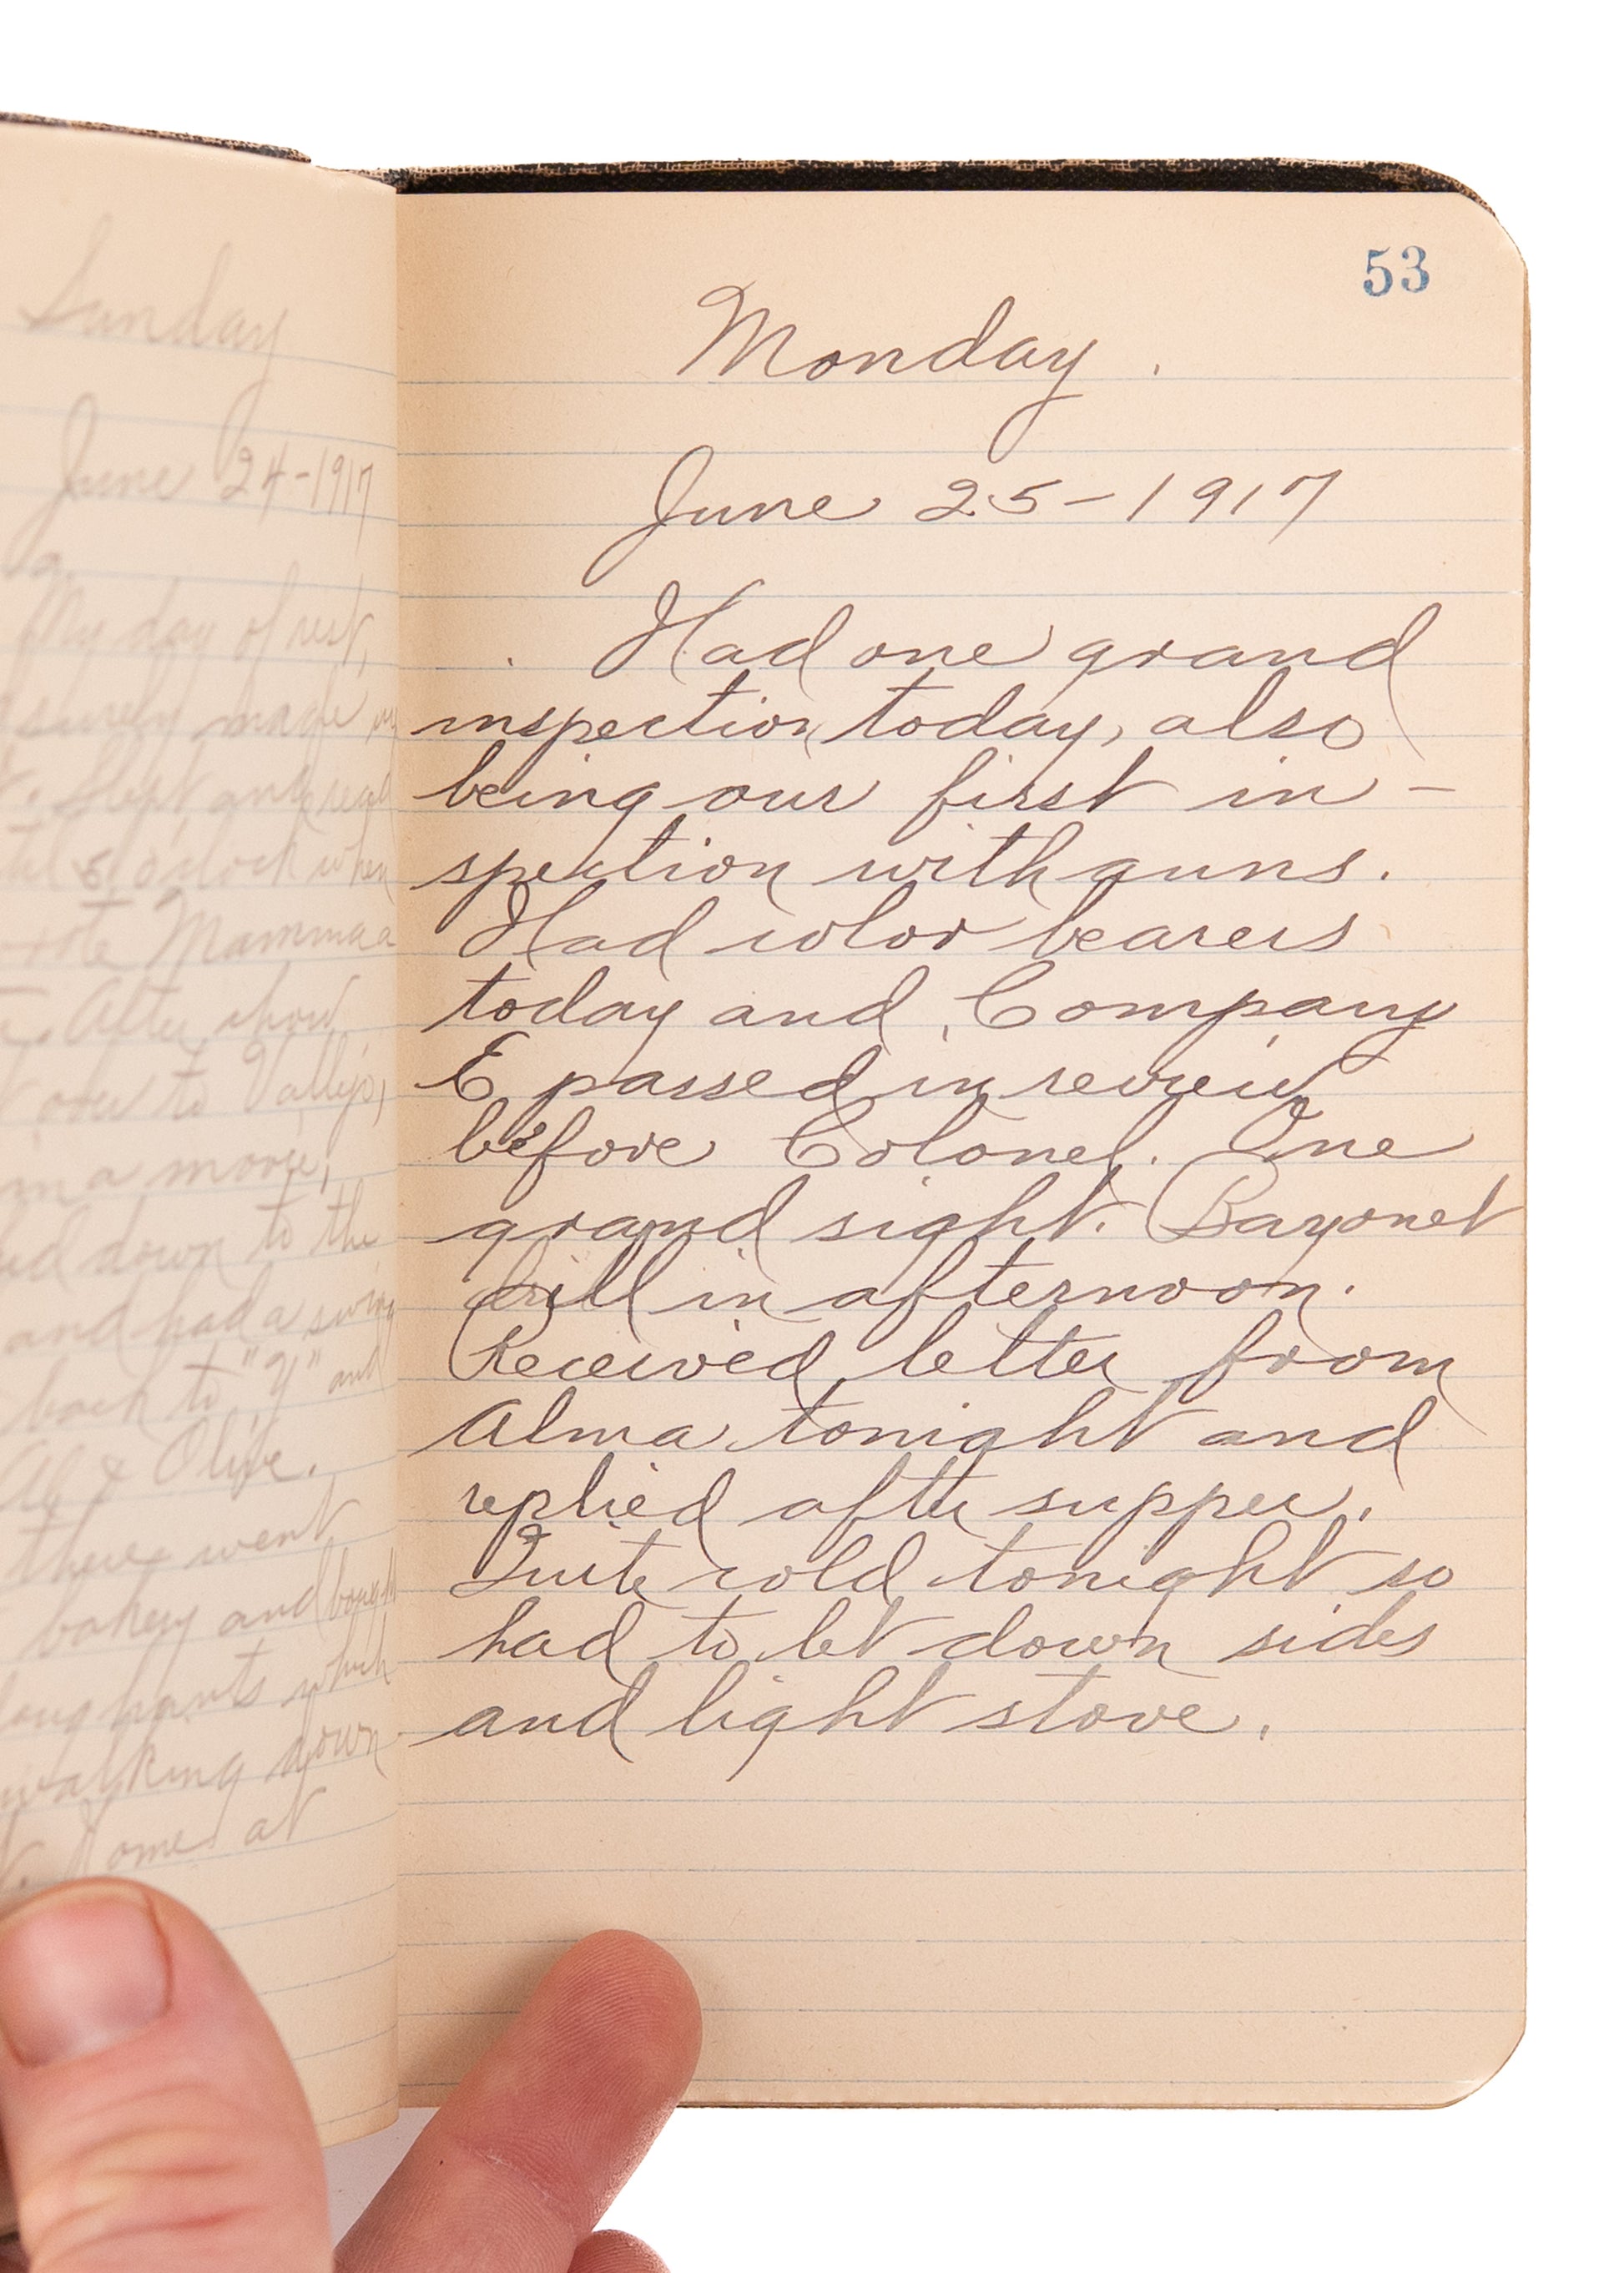 Sunday
June 24-1917
My day of rest,
surely made
Slept and read
5 o'clock when
Mamma
After chow
over to Vallejo,
in a movie,
down to the
and had a swim
back to "Y" and
Al & Olive.
there went
bakery and bought
which
walking down
Home at
53
Monday.
June 25-1917
Had one grand
inspection today, also
being our first in-
spection with guns.
Had color bearers
today and Company
E passed in review
before Colonel. One
grand sight. Bayonet
drill in afternoon.
Received letter from
Alma tonight and
replied after supper.
Quite cold tonight so
had to let down sides
and light stove.